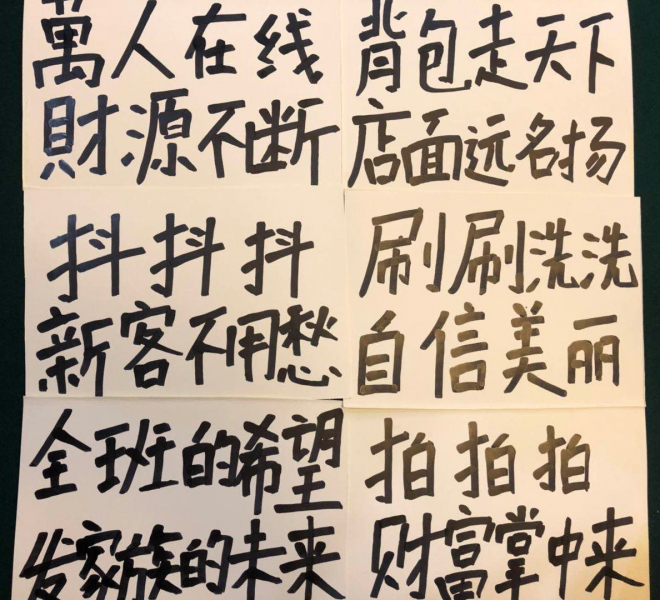 萬人在线
財源不断
背包走天下
店面远名扬
抖抖抖
新客不用愁
刷刷洗洗
自信美丽
全班的希望
发家族的未来
拍拍拍
财富掌中来